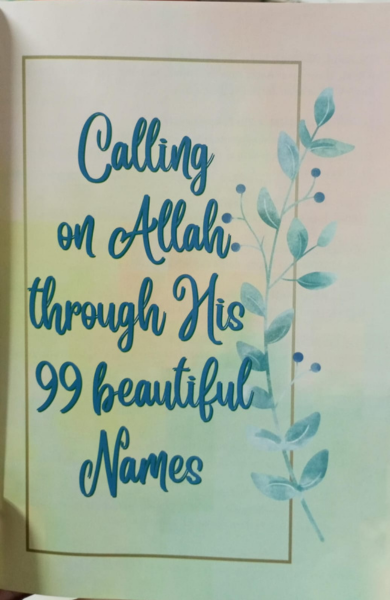 Calling
on Allah
through His
99 beautiful
Names